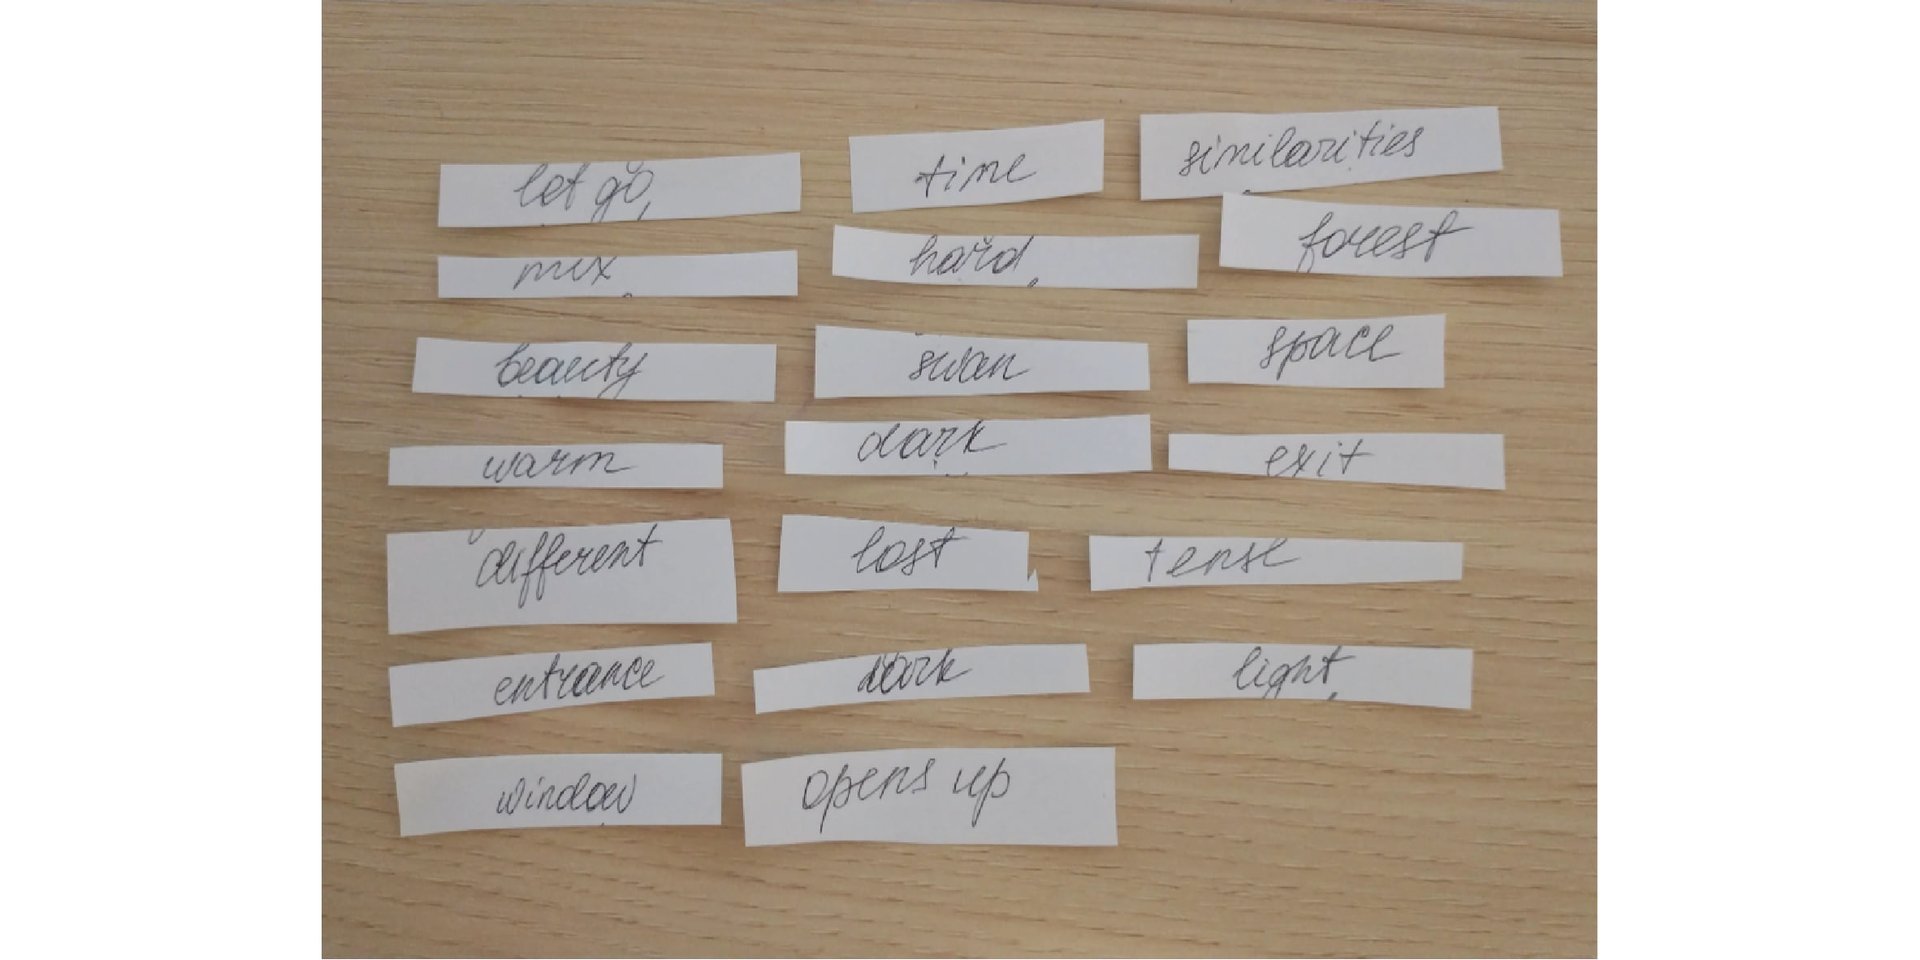 let go
time
similarities
mix
hard
forest
beauty
swan
space
warm
dark
exit
different
lost
tense
entrance
dark
light
window
opens up